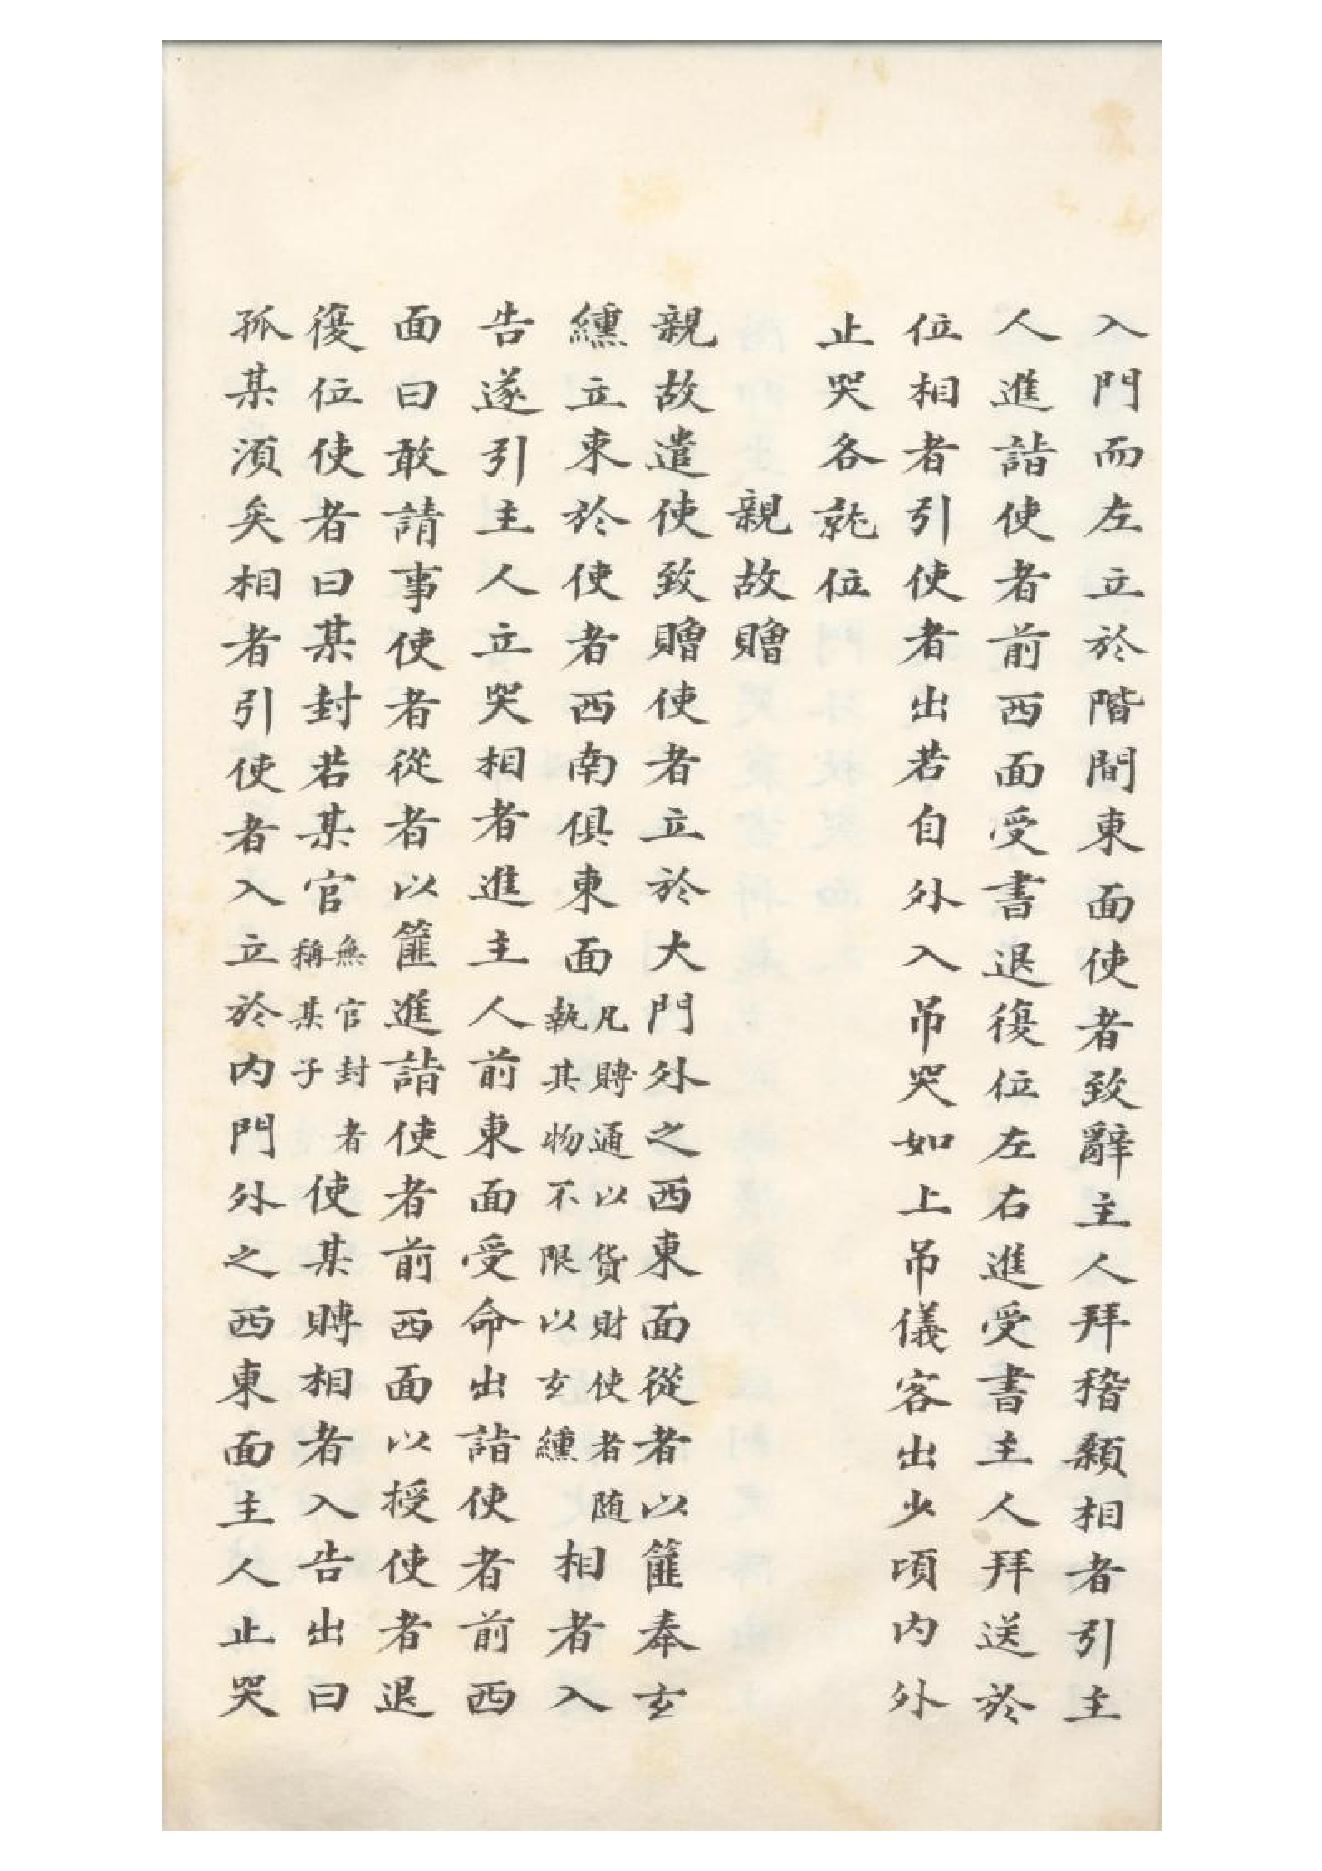 入門而左立於階間東面使者致辭主人拜稽顙相者引主
人進詣使者前西面受書退復位左右進受書主人拜送於
位相者引使者出若自外入吊哭如上吊儀客出少頃內外
止哭各就位
親故贈
親故遣使致贈使者立於大門外之西東面從者以篚奉玄
纁立東於使者西南俱東面凡賻通以貨財使者随執其物不限以玄纁相者入
告遂引主人立哭相者進主人前東面受命出詣使者前西
面曰敢請事使者從者以篚進詣使者前西面以授使者退
復位使者曰某封若某官無官封者稱某子使某賻相者入告出曰
孤某湏矣相者引使者入立於內門外之西東面主人止哭